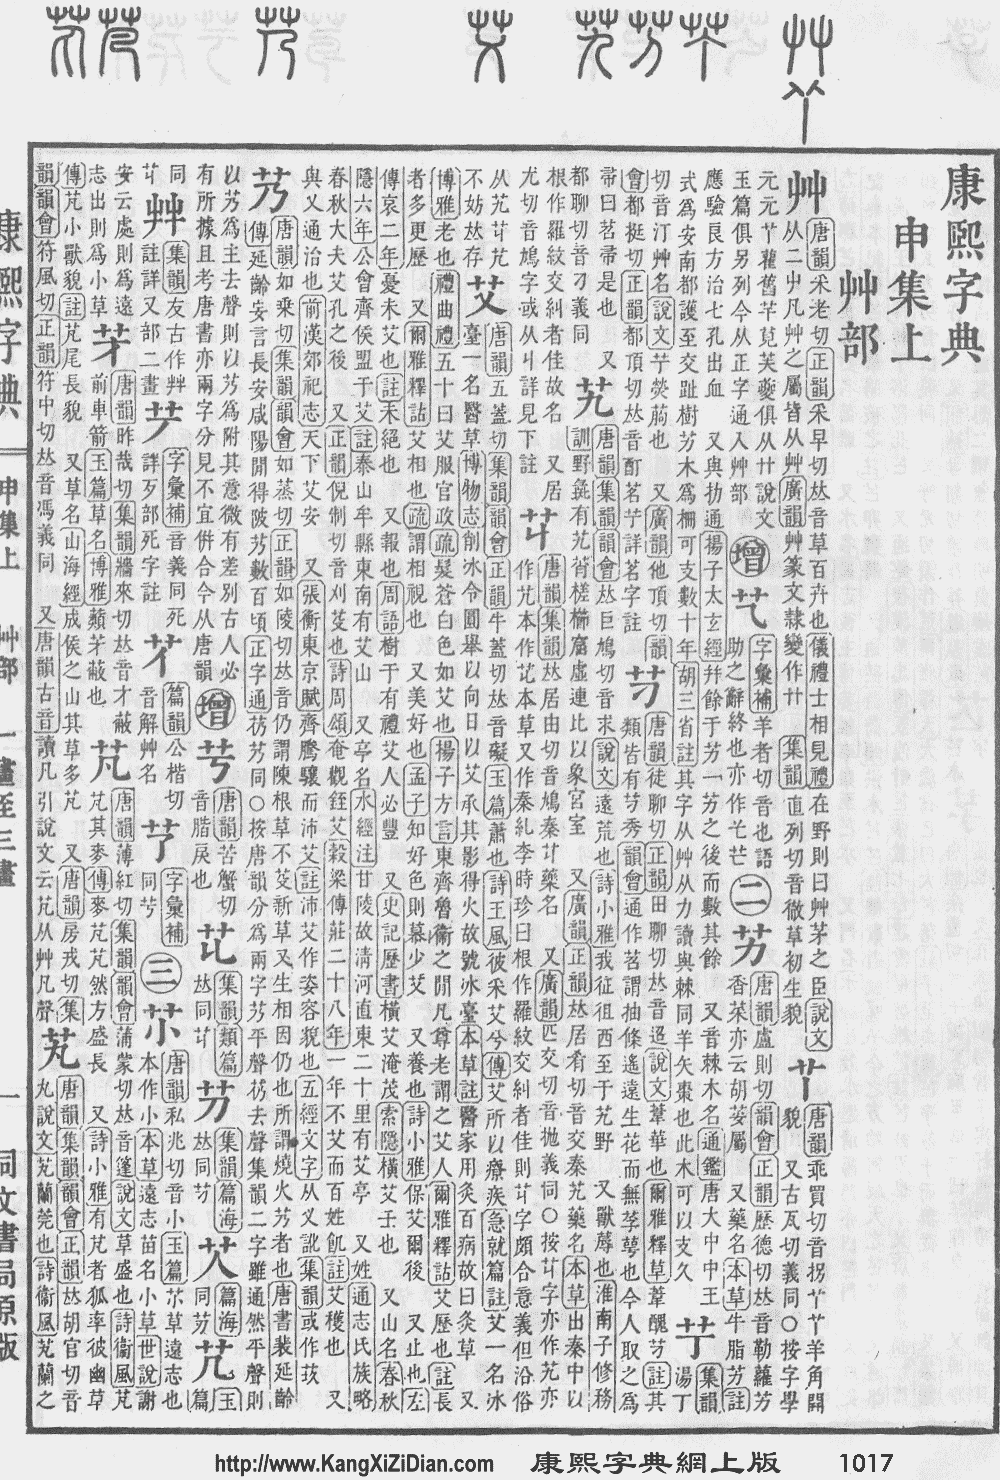 康熙字典
申集上
艸部
艸
唐韻采老切正韻采早切𠀤音草百卉也儀禮士相見禮在野則曰艸茅之臣說文
从二屮凡艸之屬皆从艸廣韻艸篆文隸變作卄 集韻直列切音徹草初生貌
唐韻乖買切音拐羊角開
貌 又古瓦切義同○按字學
元元雚舊芈莧俱从卄說文
玉篇俱另列今从正字通入艸部
增
字彙補羊者切音也語
助之辭終也亦作芒
二
艻
唐韻盧則切韻會正韻歷德切𠀤音勒蘿艻
香菜亦云胡荽屬 又藥名本草牛脂艻註
應驗良方治七孔出血 又與扐通揚子太玄經幷餘于艻一艻之後而數其餘 又音棘木名通鑑唐大中中王
式爲安南都護至交趾樹艻木爲柵可支數十年胡三省註其字从艸从力讀與棘同羊矢棗也此木可以支久
艼
集韻
湯丁
切音汀艸名說文艼熒䓇也 又廣韻他頂切韻
會都挺切正韻都頂切𠀤音酊茗艼詳茗字註
芀
唐韻徒聊切正韻田聊切𠀤音迢說文葦華也爾雅釋草葦醜芀註其
類皆有芀秀韻會通作苕謂抽條遙遠生花而無莩萼也今人取之爲
帚曰苕帚是也 又
都聊切音刁義同
艽
唐韻集韻韻會𠀤巨鳩切音求說文遠荒也詩小雅我征徂西至于艽野 又獸蓐也淮南子修務
訓野彘有艽莦槎櫛窟虛連比以象宮室 又廣韻正韻𠀤居肴切音交秦艽藥名本草出秦中以
根作羅紋交糾者佳故名 又居
尤切音鳩字或从丩詳見下註
芁
唐韻集韻𠀤居由切音鳩秦芁藥名 又廣韻匹交切音抛義同○按芁字亦作艽亦
作芁本作䒢本草又作秦糺李時珍曰根作羅紋交糾者佳則芁字頗合意義但沿俗
从艽芁艽
不妨𠀤存
艾
唐韻五蓋切集韻韻會正韻牛蓋切𠀤音礙玉篇蕭也詩王風彼采艾兮傳艾所以療疾急就篇註艾一名冰
臺一名醫草博物志削冰令圓舉以向日以艾承其影得火故號冰臺本草註醫家用灸百病故曰灸草 又
博雅老也禮曲禮五十曰艾服官政疏髮蒼白色如艾也揚子方言東齊魯衞之閒凡尊老謂之艾人爾雅釋詁艾歷也註長
者多更歷 又爾雅釋詁艾相也疏謂相視也 又美好也孟子知好色則慕少艾 又養也詩小雅保艾爾後 又止也左
傳哀二年憂未艾也註未絕也 又報也周語樹于有禮艾人必豐 又史記歷書橫艾淹茂索隱橫艾壬也 又山名春秋
隱六年公會齊侯盟于艾註泰山牟縣東南有艾山 又亭名水經注甘陵故清河直東二十里有艾亭 又姓通志氏族略
春秋大夫艾孔之後 又正韻倪制切音刈芟也詩周頌奄觀銍艾穀梁傳莊二十八年一年不艾而百姓飢註艾穫也 又
與乂通治也前漢郊祀志天下艾安 又張衡東京賦齊騰驤而沛艾註沛艾作姿容貌也五經文字从乂訛集韻或作䒳
艿
唐韻如乗切集韻韻會如蒸切正韻如陵切𠀤音仍謂陳根草不芟新草又生相因仍也所謂燒火艿者也唐書裴延齡
傳延齡妄言長安咸陽閒得陂艿數百頃正字通芿艿同○按唐韻分爲兩字艿平聲芿去聲集韻二字雖通然平聲則
以艿爲主去聲則以艿爲附其意微有差別古人必
有所據且考唐書亦兩字分見不宜倂合今从唐韻
增
唐韻苦蟹切
音䏿戾也
集韻類篇
𠀤同
集韻篇海
𠀤同芀
篇海
同艿
玉
篇
同
集韻友古作艸
註詳又部二畫
字彙補音義同死
詳歹部死字註
篇韻公楷切
音解艸名
字彙補
同
三
䒕
唐韻私兆切音小玉篇䒕草遠志也
本作小本草遠志苗名小草世說謝
安云處則爲遠
志出則爲小草
唐韻昨哉切集韻牆來切𠀤音才蔽
前車箭玉篇草名博雅蘱茅蔽也
芃
唐韻薄紅切集韻韻會蒲蒙切𠀤音篷說文草盛也詩衞風芃
芃其麥傳麥芃芃然方盛長 又詩小雅有芃者狐率彼幽草
傳芃小獸貌註芃尾長貌 又草名山海經成侯之山其草多芃 又唐韻房戎切集
韻韻會符風切正韻符中切𠀤音馮義同 又唐韻古音讀凡引說文云芃从艸凡聲
芄
唐韻集韻韻會正韻𠀤胡官切音
丸說文芄蘭莞也詩衞風芄蘭之
康熙字典
申集上 艸部 一畫至三畫
一
同文書局原版
http://www.KangXiZiDian.com 康熙字典網上版 1017